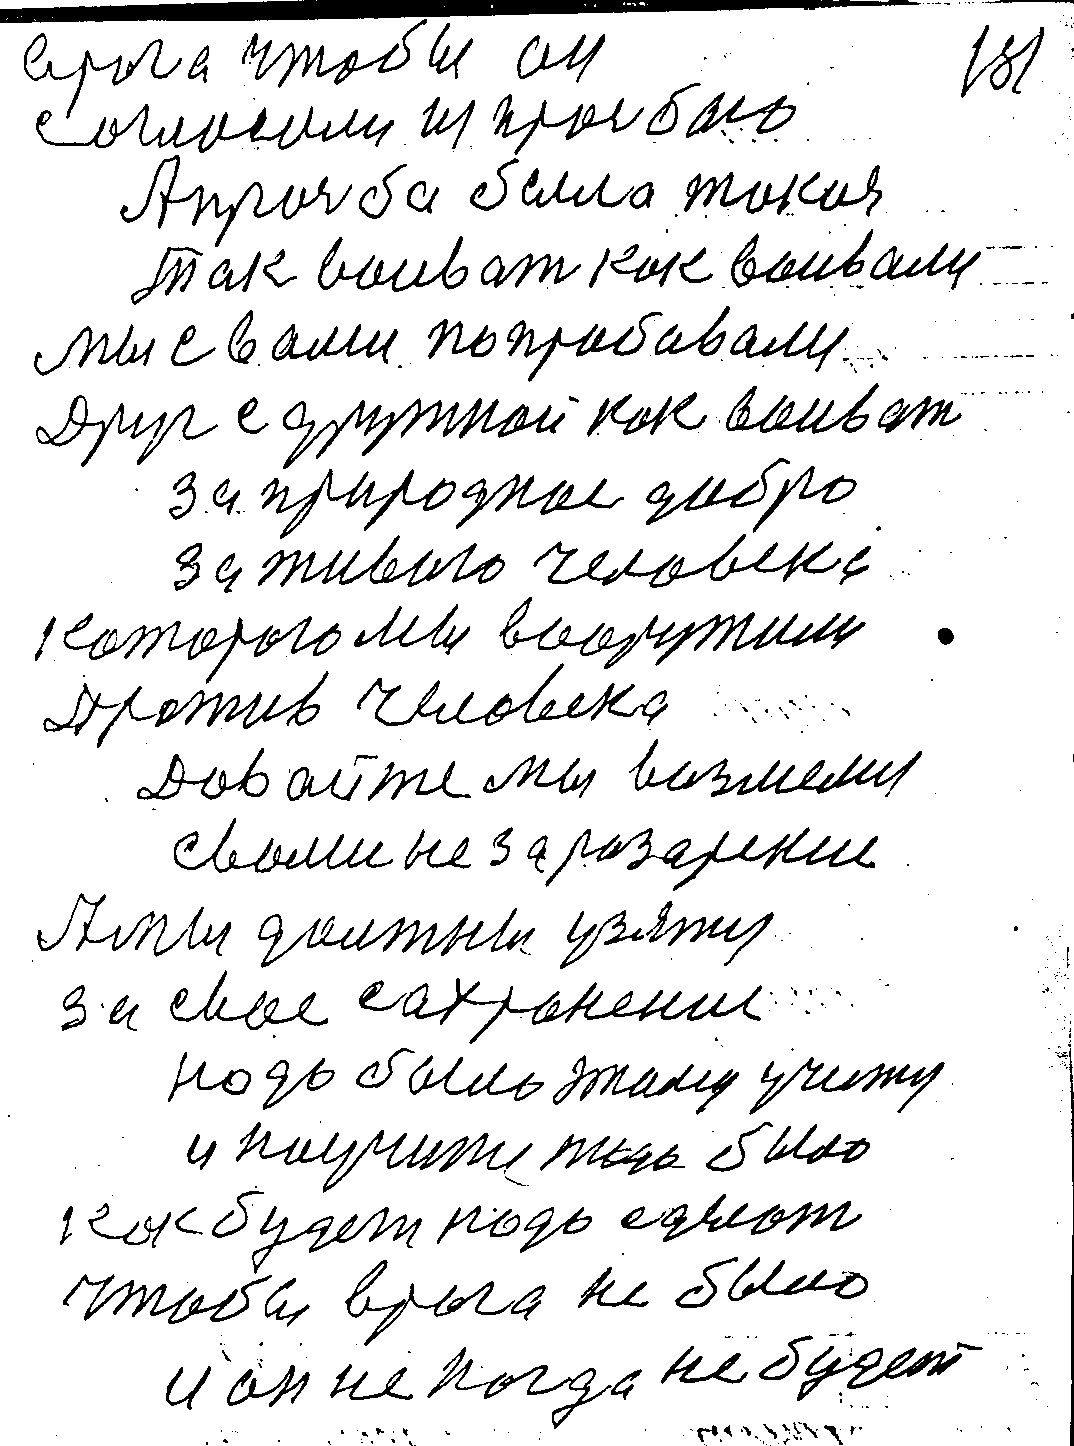 врага чтобы он 131
согласили и прозбою
А прозба была такая
Так воиват как воивали
мы с вами попробавали
Друг с дружкой как воиват
за природное добро
за живого человека
которого мы вооружили
Против человека
Довайте мы возмеми
своми не за розарение
А мы должны узяти
за свое сахронение
нодо было этому учити
и научити нодо было
как будет нодо сделат
чтобы врага не было
и он не когда не будет